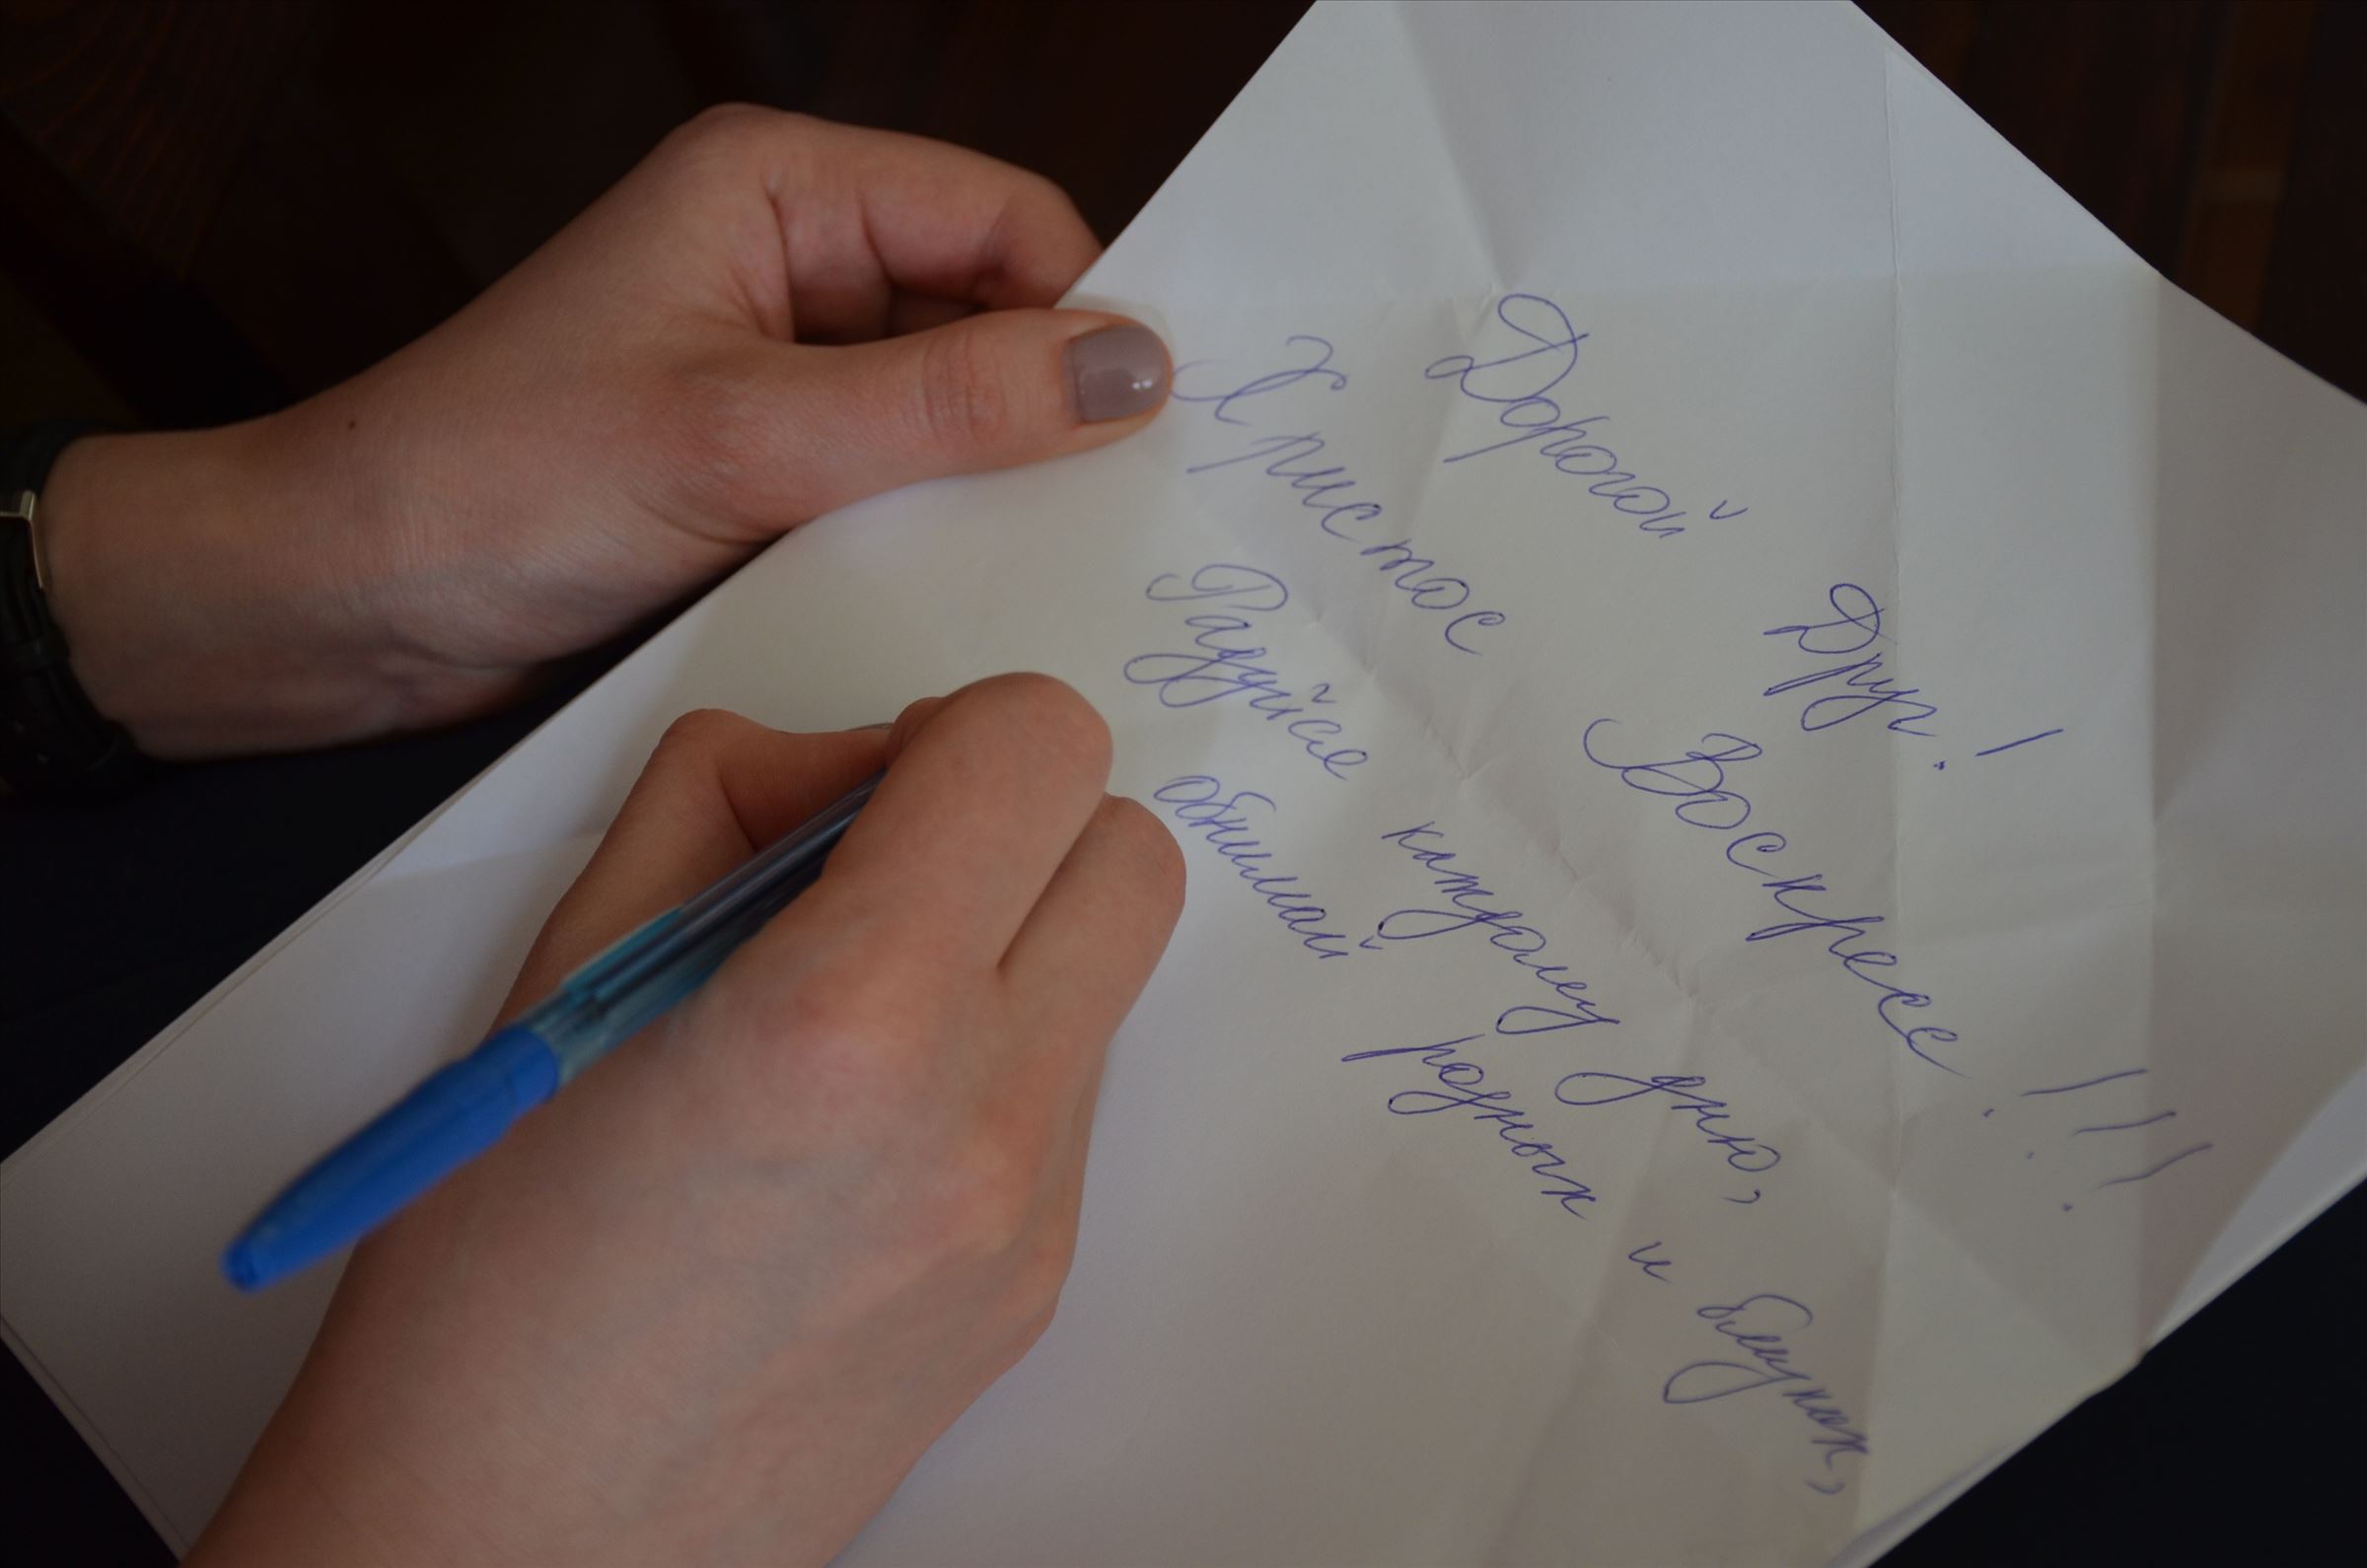 Дорогой Друг!
Христос Воскресе!!!
Радуйся каждому дню,
обнимай родных и